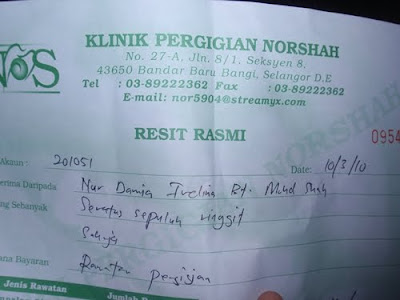 NS
KLINIK PERGIGIAN NORSHAH
No. 27-A, Jln. 8/1, Seksyen 8,
43650 Bandar Baru Bangi, Selangor D.E
Tel : 03-89222362 Fax : 03-89222362
E-mail: nor5904@streamyx.com
RESIT RASMI
0954
Akaun : 201051 Date: 10/3/10
erima Daripada Nur Dania Irelina Bt. Mohd Shah
ng Sebanyak Seratus sepuluh ringgit
Sahaja
ana Bayaran Rawatan pergigian
Jenis Rawatan Jumlah